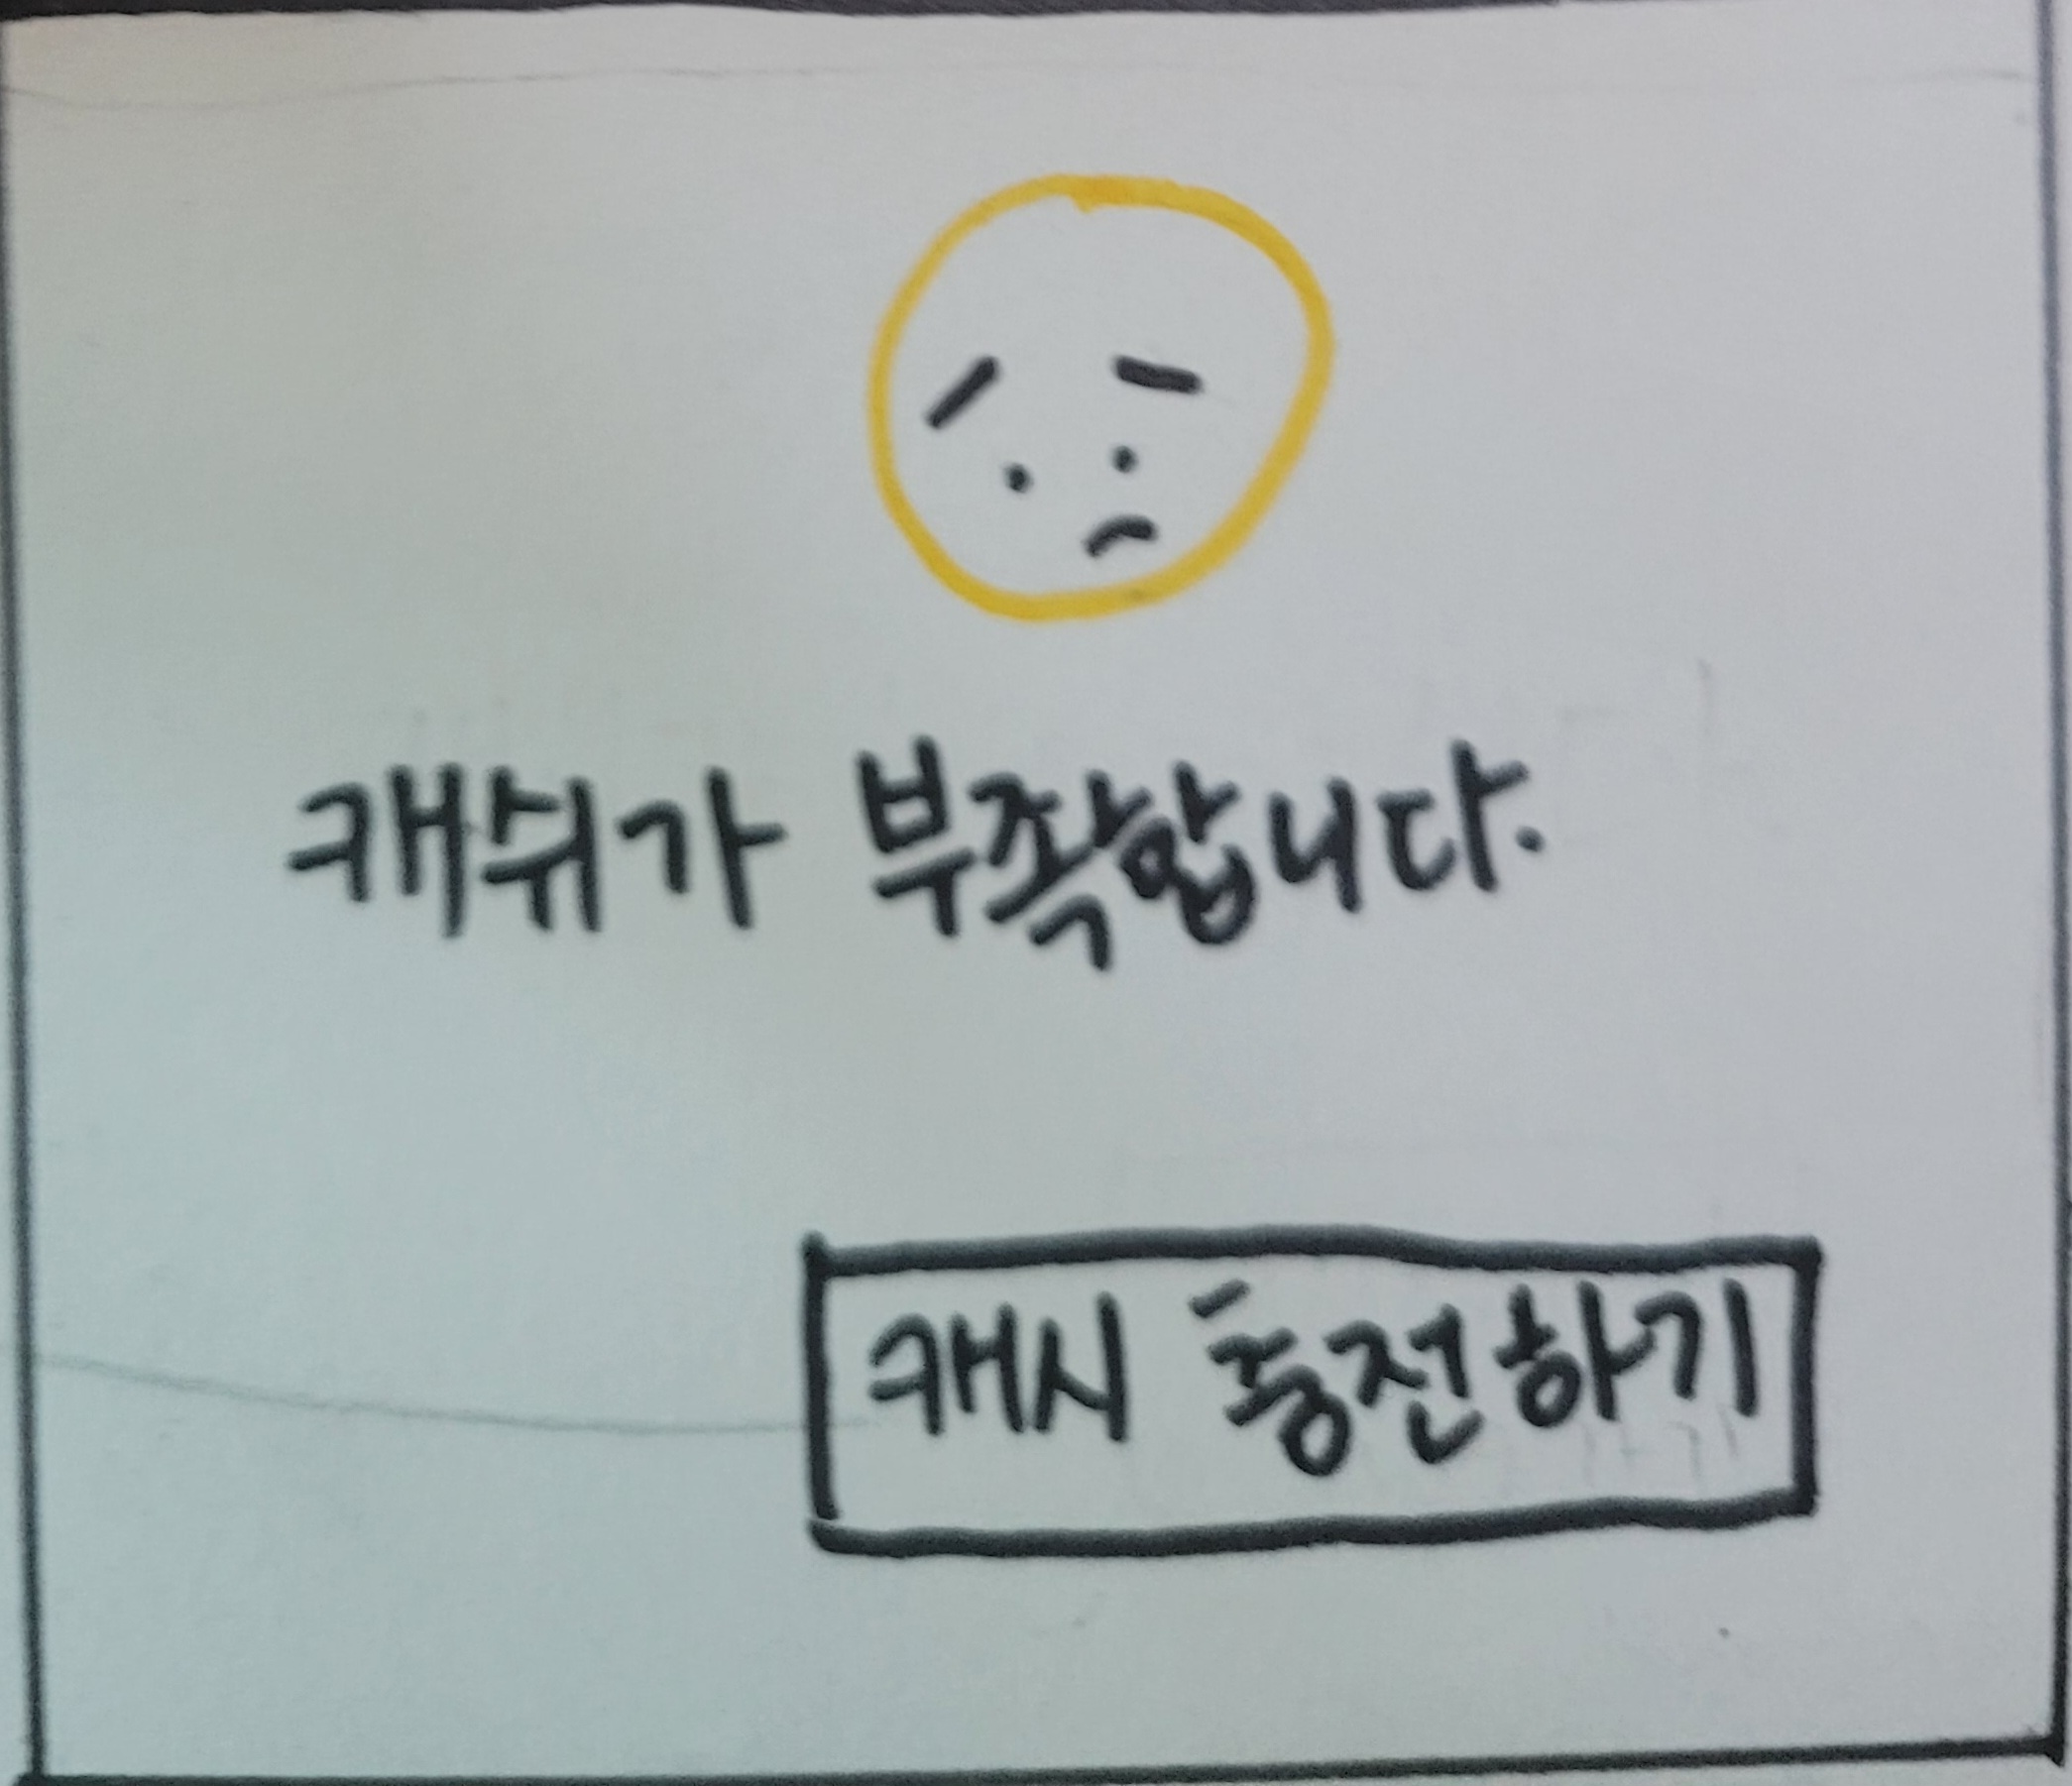 캐쉬가 부족합니다.
캐시 충전하기